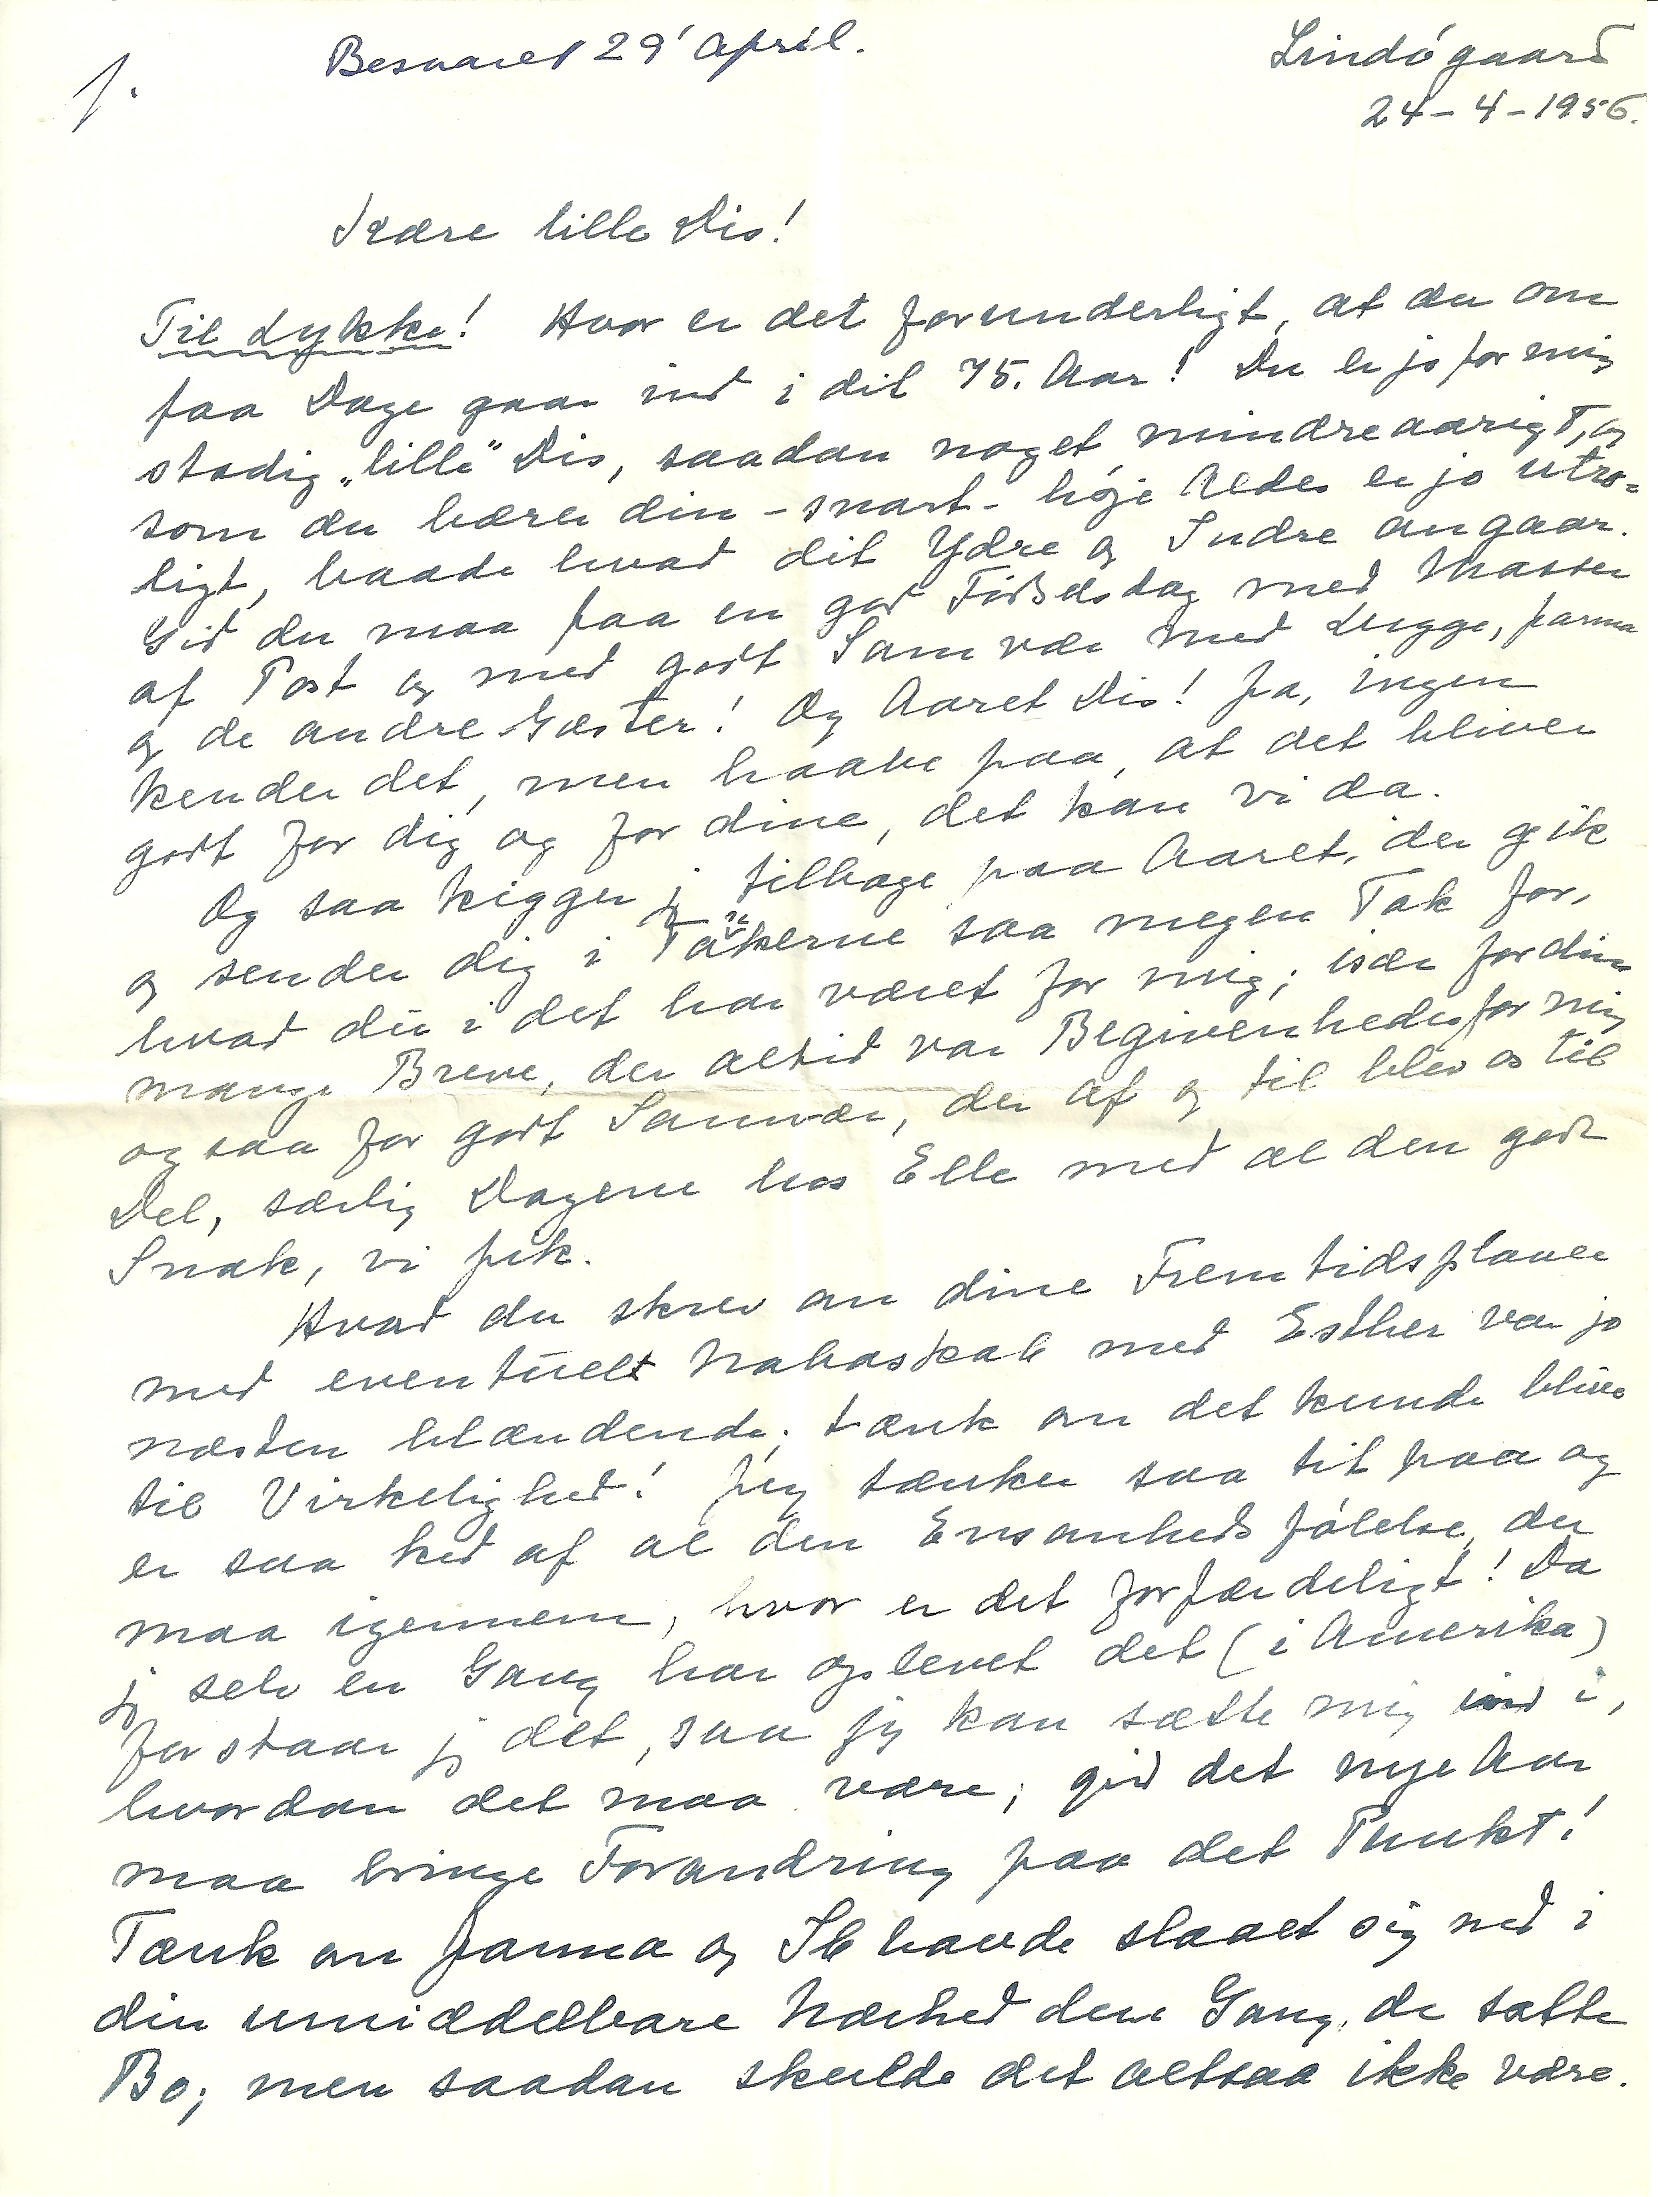 1.
Besvaret 29' April.
Lindøgaard
24-4-1956.
Kære lille Dis!
Til Lykke! Hvor er det forunderligt, at du om
faa Dage gaar ind i dit 75. Aar! Du er jo for mig
stadig "lille" Dis, saadan noget mindreaarigt, og
som du bærer din - snart - høje Alder er jo utro=
ligt, baade hvad dit Ydre og Indre angaar.
Gid du maa faa en god Fødselsdag med Masser
af Post og med godt Samvær med Lugge, Janna
og de andre Gæster! Og Aaret Dis! Ja, ingen
kender det, men haabe paa, at det bliver
godt for dig og for dine, det kan vi da.
Og saa kigger jeg tilbage paa Aaret, der gik
og sender dig i Tankerne saa megen Tak for,
hvad du i det har været for mig; især for dine
mange Breve, der altid var Begivenheder for mig
og saa for godt Samvær, der af og til blev os til
Del, særlig Dagene hos Elle med al den gode
Snak, vi fik.
Hvad du skrev om dine Fremtidsplaner
med eventuelt Naboskab med Esther var jo
næsten blændende; tænk om det kunde blive
til Virkelighed! Jeg tænker saa tit paa og
er saa ked af al den Ensomhedsfølelse, du
maa igennem, hvor er det forfærdeligt! Da
jeg selv en Gang har oplevet det (i Amerika)
forstaar jeg det, saa jeg kan sætte mig ind i,
hvordan det maa være; gid det nye Aar
maa bringe Forandring paa det Punkt!
Tænk om Janna og Ib havde slaaet sig ned i
din umiddelbare Nærhed den Gang, de satte
Bo; men saadan skulde det altsaa ikke være.